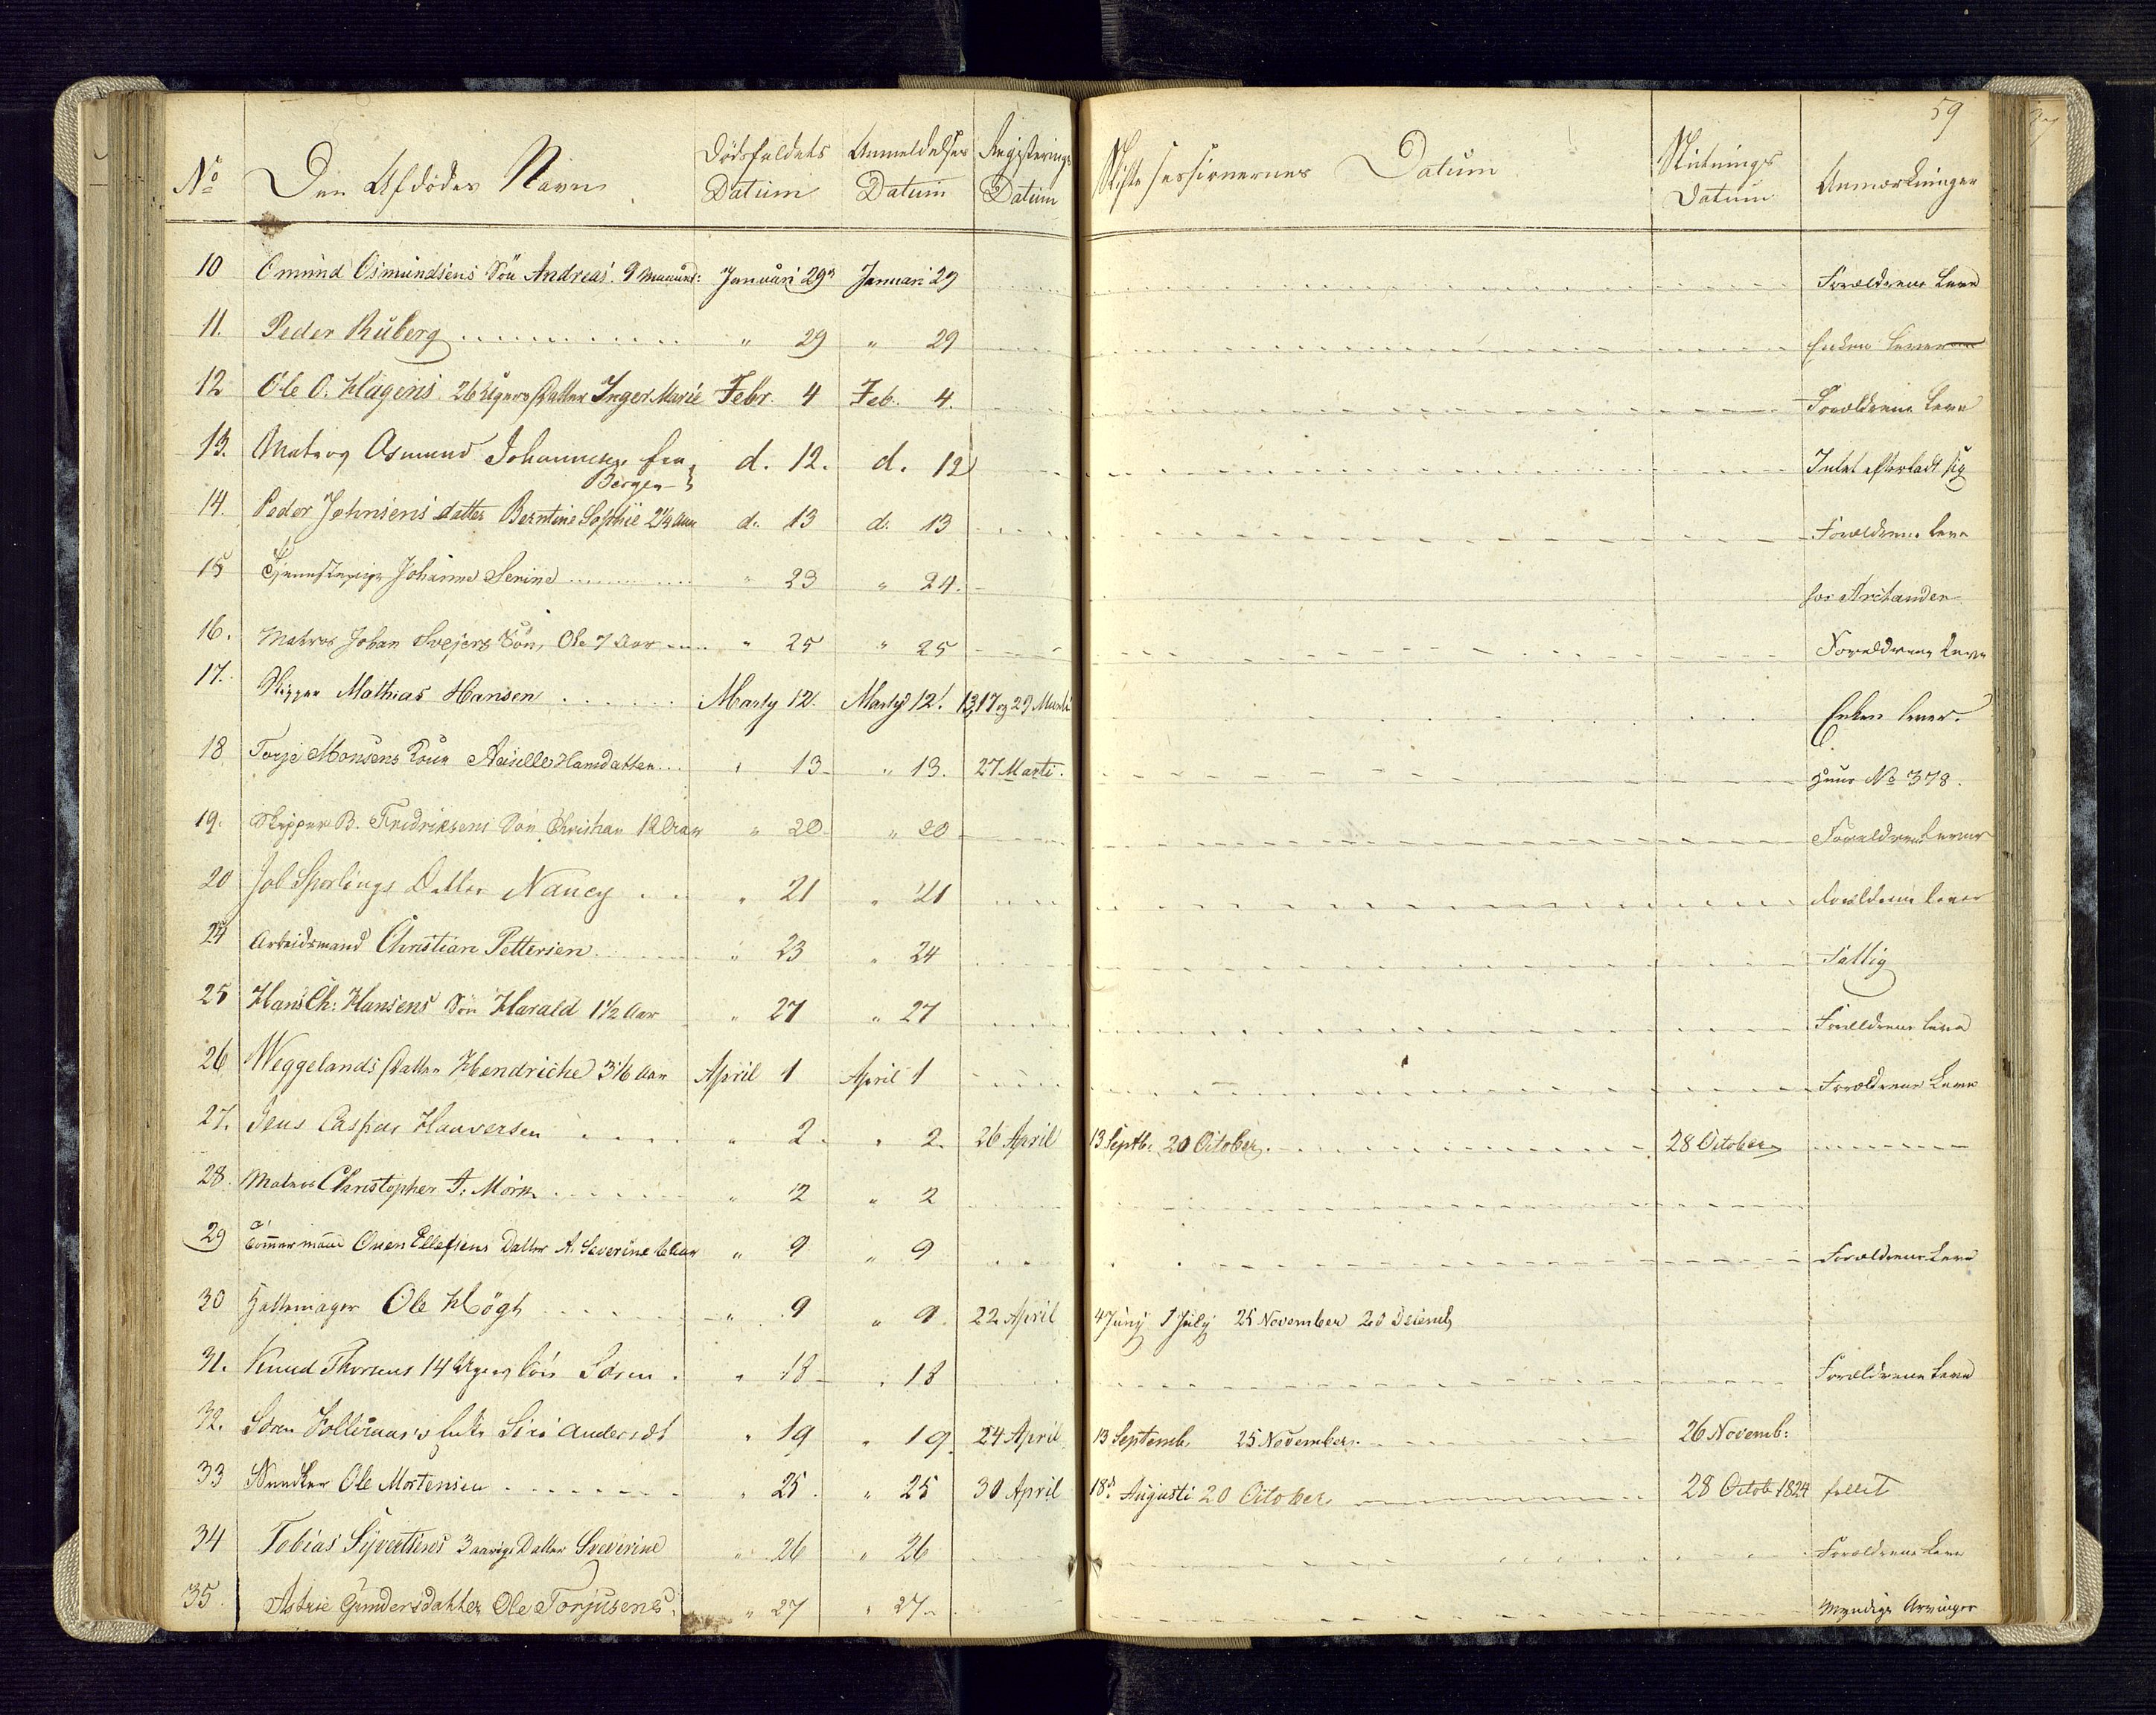 59
No Den Afdödes Navn Dödsfaldets Datum Anmeldelses Datum Registerings Datum Skifte sessionernes Datum Slutnings Datum Anmærkninger
10 Omund Osmundsens Sön Andreas 9 Maaned: Januari 29 Januari 29 Forældrene Leve
11. Peder Ruberg " 29 " 29 Enken Lever
12 Ole O. Hagens 26 Ugers Datter Inger Marie Febr. 4 Feb. 4. Forældrene Leve
13. Matros Asmund Johannesen fra d. 12. d. 12 Intet efterladt sig
Bergen
14. Peder Johnsens datter Berntine Sophie 2 1/4 Aar d. 13 d. 13 Forældrene Leve
15 Tjenestepige Johanne Serine " 23 " 24. hos Arctander
16. Matros Johan Svejers Sön, Ole 7 Aar " 25 " 25 Forældrene Leve
17. Skipper Mathias Hansen Marty 12. Marty 12. 13, 17 og 29 Marti Enken lever.
18 Torje Monsens Kone Hansdatter " 13 " 13. 27 Marti. Huus No 378.
19. Skipper B. Fredriksens Sön Christian 12 Aar " 20 " 20 Forældrene Lever
20 Job Sperlings Datter Nancy " 21 " 21 Forældrene Lever
24 Arbeidsmand Christian Pettersen " 23 " 24 Fattig
25 Hans Ch: Hansens Sön Harald 1 1/2 Aar " 27 " 27 Forældrene leve
26 Weggelands Datter Hendriche 3 1/6 Aar April 1 April 1 Forældrene Leve
27. Jens Casper Hanversen " 2. " 2. 26 April 13 Septb. 20 October. 28 October
28. Matros Christopher T. Mörk " 2 " 2
29 Tömmermand Owen Ellefsens Datter A. Severine Aar " 9 " 9 Forældrene Leve
30 Hattemager Ole Högh " 9 " 9. 22 April 4 Juny 1 July 25 November 20 Decemb
31. Knud Thorsens 14 Ugers Sön Sören. " 18 " 18 Forældrene Leve
32. Sören Enke Siri Andersdt " 19 " 19. 24 April 13 Septemb. 25 November. 26 Novemb:
33 Snedker Ole Mortensen " 25. " 25 30 April 18d Augusti 20 October 28 Octob 1824 fallit
34 Tobias Syvertsens 3 aarige Datter Severine " 26 " 26 Forældrene Leve
35. Astrie Gundersdatter Ole Torjusens " 27 " 27 Myndige Arvinger